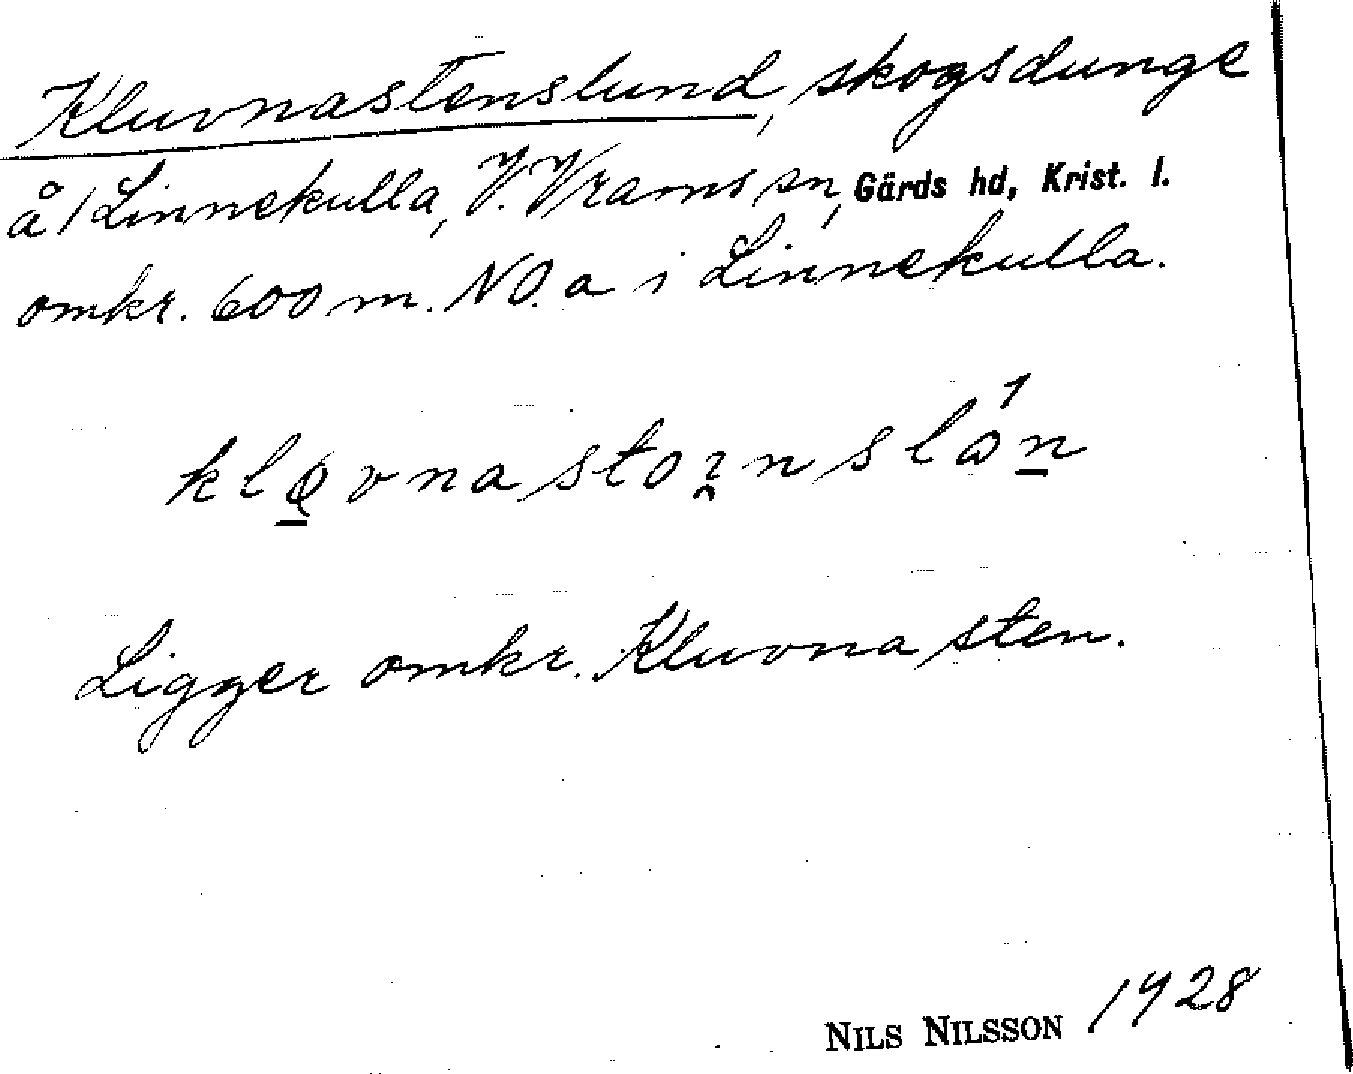 Kluvnastenslund, skogsdunge
å/Linnekulla, V. Vrams sn, Gärds hd, Krist. l.
omkr. 600 m. NO. a i Linnekulla.
Ligger omkr. Kluvna sten.
NILS NILSSON 1928